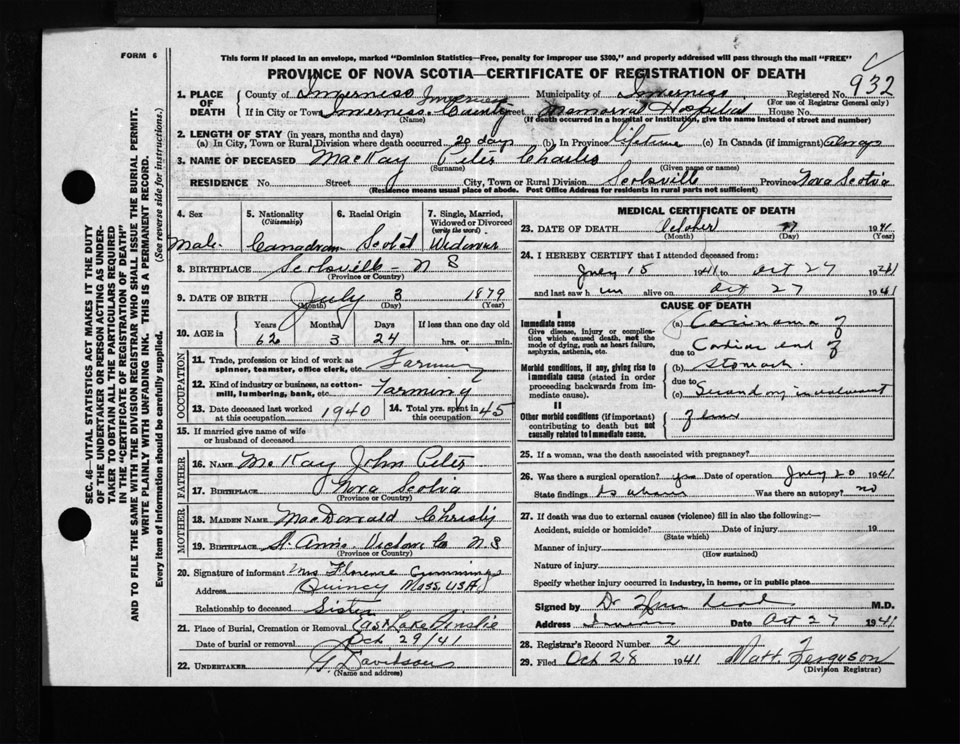 FORM 6
This form if placed in an envelope, marked "Dominion Statistics—Free, penalty for improper use $300," and properly addressed will pass through the mail "FREE"
PROVINCE OF NOVA SCOTIA—CERTIFICATE OF REGISTRATION OF DEATH
SEC. 46—VITAL STATISTICS ACT MAKES IT THE DUTY
OF THE UNDERTAKER OR PERSON ACTING AS UNDER-
TAKER TO OBTAIN ALL THE PARTICULARS REQUIRED
IN THE "CERTIFICATE OF REGISTRATION OF DEATH"
AND TO FILE THE SAME WITH THE DIVISION REGISTRAR WHO SHALL ISSUE THE BURIAL PERMIT.
WRITE PLAINLY WITH UNFADING INK. THIS IS A PERMANENT RECORD.
Every item of information should be carefully supplied. (See reverse side for instructions.)
1. PLACE OF DEATH County of Inverness Municipality of Inverness Registered No. 932
(For use of Registrar General only)
If in City or Town Inverness Inverness County Street Memorial Hospital House No.
(Name) (If death occurred in a hospital or institution, give the name instead of street and number)
2. LENGTH OF STAY (in years, months and days)
(a) In City, Town or Rural Division where death occurred 20 days (b) In Province Lifetime (c) In Canada (if immigrant) Always
3. NAME OF DECEASED MacKay Peter Charles
(Surname) (Given name or names)
RESIDENCE No. Street City, Town or Rural Division Scotsville Province Nova Scotia
(Residence means usual place of abode. Post Office Address for residents in rural parts not sufficient)
4. Sex 5. Nationality (Citizenship) 6. Racial Origin 7. Single, Married, Widowed or Divorced (write the word)
Male Canadian Scotch Widower
8. BIRTHPLACE Scotsville - N S
(Province or Country)
9. DATE OF BIRTH July 3 1879
(Month) (Day) (Year)
10. AGE in Years Months Days If less than one day old
62 3 24 hrs. or min.
OCCUPATION
11. Trade, profession or kind of work as spinner, teamster, office clerk, etc. Farming
12. Kind of industry or business, as cotton-mill, lumbering, bank, etc. Farming
13. Date deceased last worked at this occupation 1940 14. Total yrs. spent in this occupation 45
15. If married give name of wife or husband of deceased
FATHER
16. NAME McKay John Peter
17. BIRTHPLACE Nova Scotia
(Province or Country)
MOTHER
18. MAIDEN NAME MacDonald Christy
19. BIRTHPLACE St. Ann's Victoria Co N S
(Province or Country)
20. Signature of informant Mrs Florence Cummings
Address Quincy Mass. USA
Relationship to deceased Sister
21. Place of Burial, Cremation or Removal Lake Ainslie
Date of burial or removal Oct 29/41
22. UNDERTAKER G. Davidson
(Name and address)
MEDICAL CERTIFICATE OF DEATH
23. DATE OF DEATH October 27 1941
(Month) (Day) (Year)
24. I HEREBY CERTIFY that I attended deceased from:
July 15 1941 to Oct 27 1941
and last saw h im alive on Oct 27 1941
CAUSE OF DEATH
I
Immediate cause
Give disease, injury or complication which caused death, not the mode of dying, such as heart failure, asphyxia, asthenia, etc.
(a) Carcinoma of
due to Cardiac end of
Morbid conditions, if any, giving rise to immediate cause (stated in order proceeding backwards from immediate cause).
(b) Stomach.
due to
(c) Secondary involvement
II
Other morbid conditions (if important) contributing to death but not causally related to immediate cause.
of
25. If a woman, was the death associated with pregnancy?
26. Was there a surgical operation? yes Date of operation July 20 1941
State findings as above Was there an autopsy? no
27. If death was due to external causes (violence) fill in also the following:—
Accident, suicide or homicide? Date of injury 19
(State which)
Manner of injury
(How sustained)
Nature of injury
Specify whether injury occurred in industry, in home, or in public place
Signed by Dr M.D.
Address Date Oct 27 1941
28. Registrar's Record Number 2
29. Filed Oct 28 1941 Matt. Ferguson
(Division Registrar)